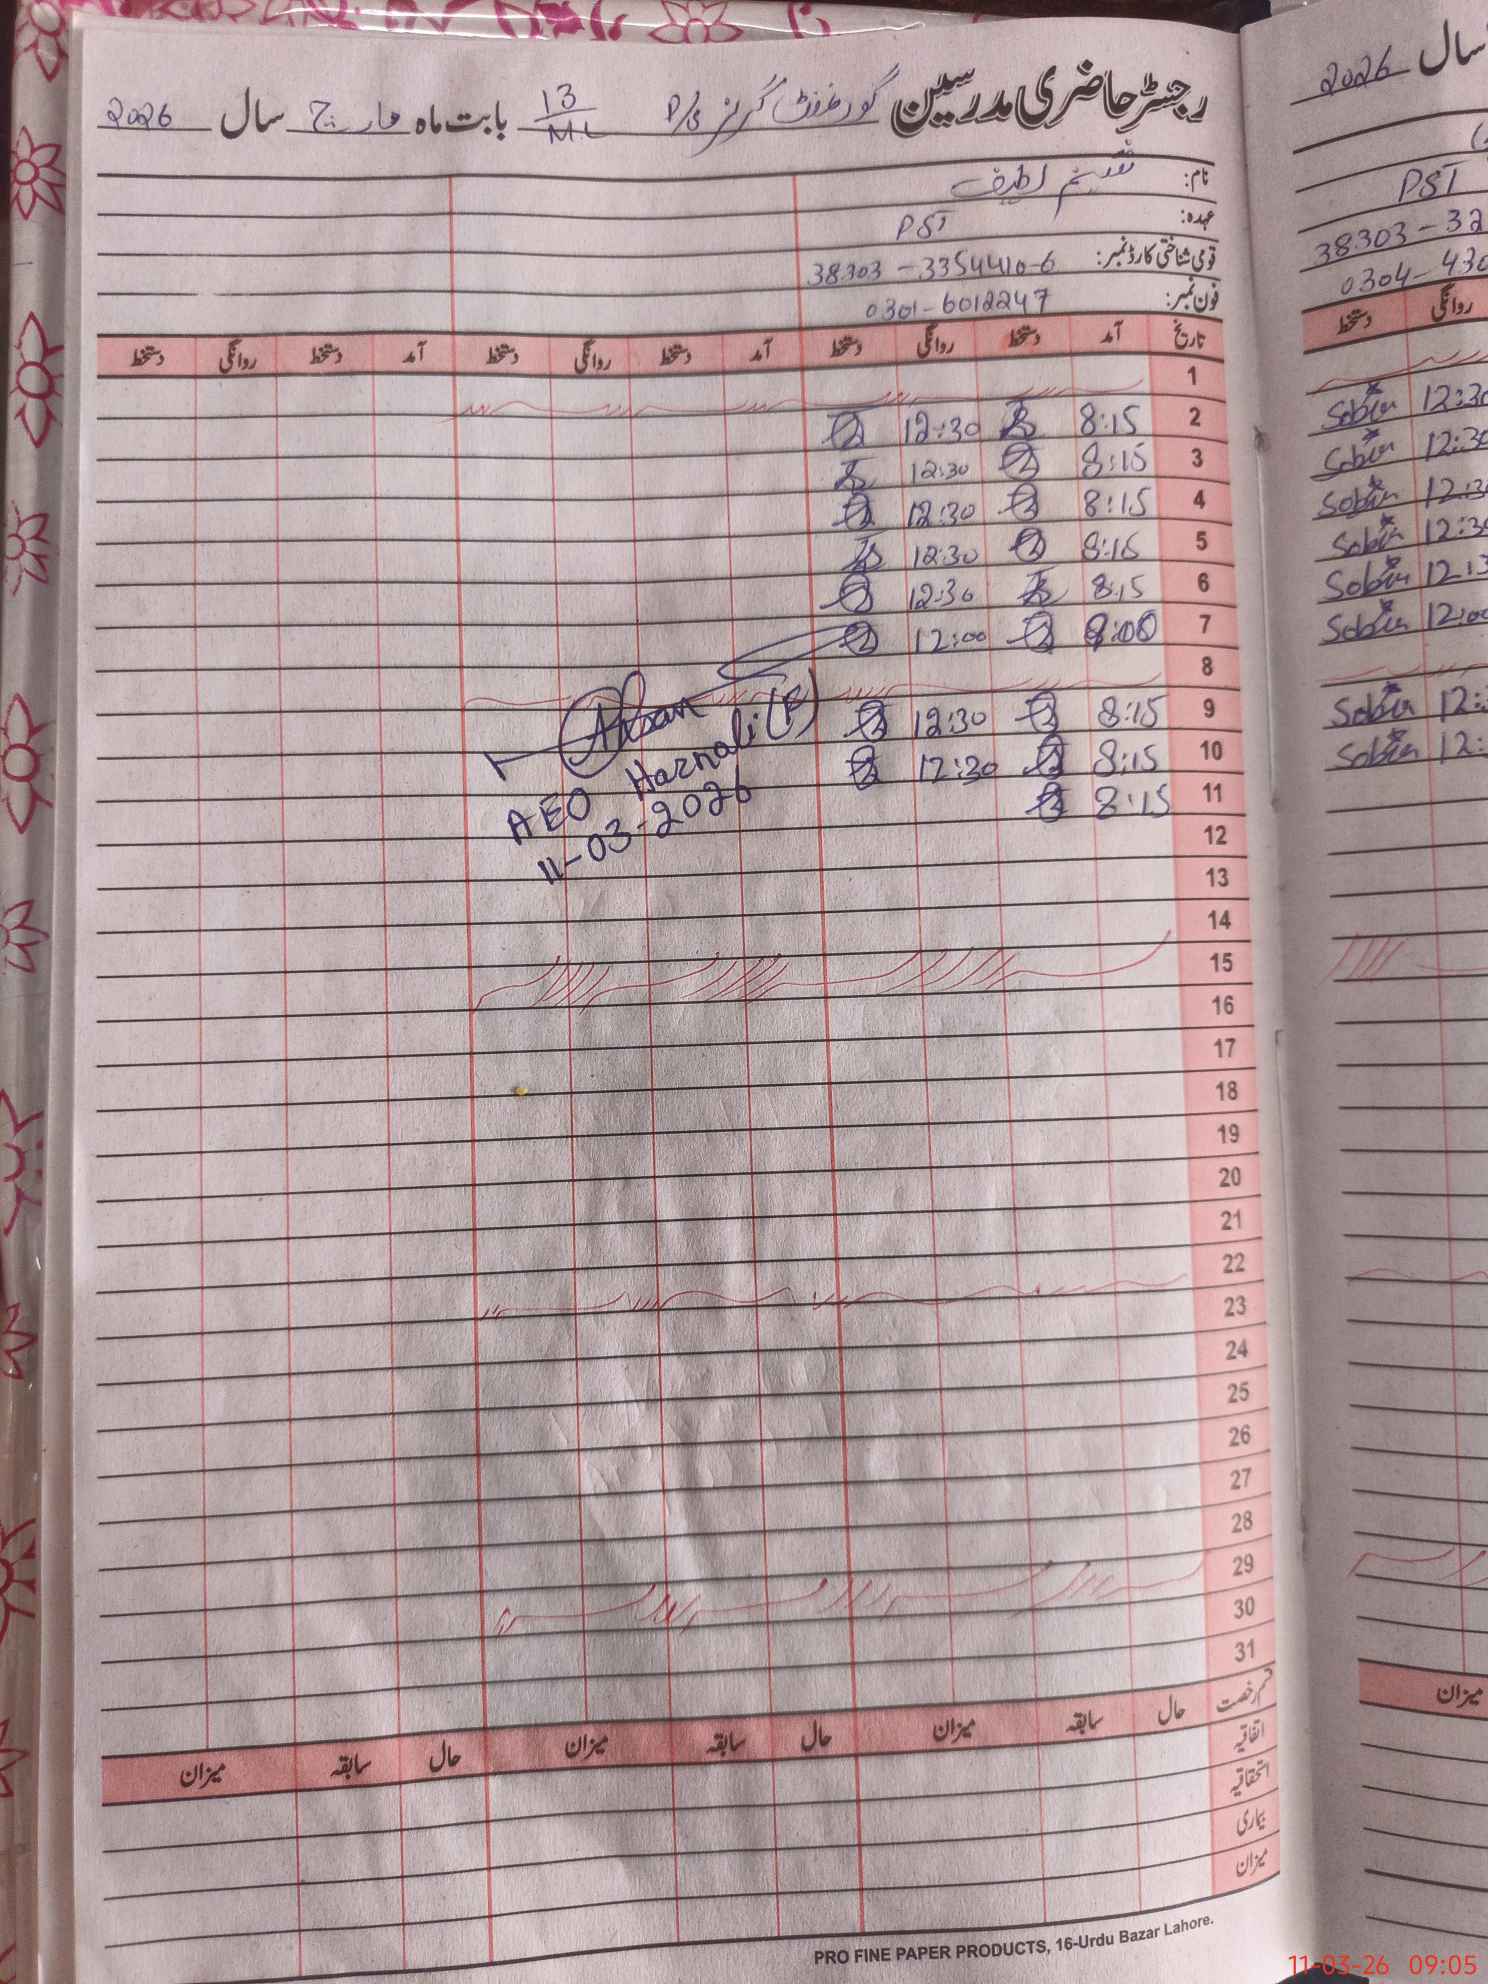 رجسٹر حاضری مدرسین گورنمنٹ گرلز P/S 13/ML بابت ماہ مارچ سال 2026
نام: نسیم لطیف
عہدہ: PST
قومی شناختی کارڈ نمبر: 38303-3354410-6
فون نمبر: 0301-6012247
تاریخ آمد دستخط روانگی دستخط آمد دستخط روانگی دستخط آمد دستخط روانگی دستخط
1
2 8:15 12:30
3 8:15 12:30
4 8:15 12:30
5 8:15 12:30
6 8:15 12:30
7 8:00 12:00
8
9 8:15 12:30
10 8:15 12:30
11 8:15
AEO Harnoli (F)
11-03-2026
12
13
14
15
16
17
18
19
20
21
22
23
24
25
26
27
28
29
30
31
قسم رخصت حال سابقہ میزان حال سابقہ میزان حال سابقہ میزان
اتفاقیہ
استحقاقیہ
بیماری
میزان
PRO FINE PAPER PRODUCTS, 16-Urdu Bazar Lahore.
سال 2026
PST
38303-32
0304-430
روانگی دستخط
12:30 Sobia
12:30 Sobia
12:30 Sobia
12:30 Sobia
12:3 Sobia
12:00 Sobia
12:3 Sobia
12: Sobia
میزان
11-03-26 09:05